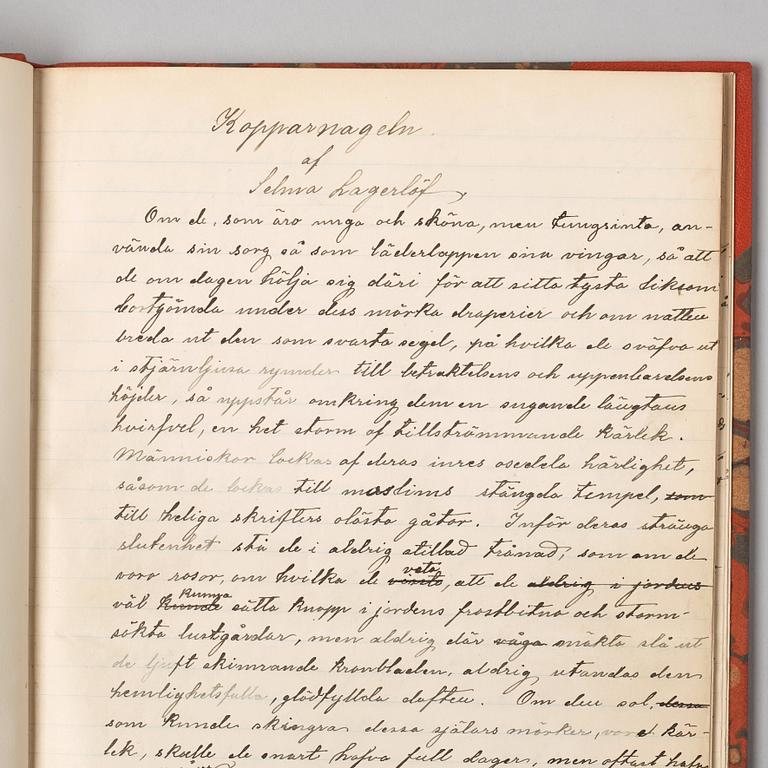 Kopparnageln
af
Selma Lagerlöf.
Om de, som äro unga och sköna, men tungsinta, an-
vända sin sorg så som läderlappen sina vingar, så att
de om dagen hölja sig däri för att sitta tysta liksom
bortgömda under dess mörka draperier och om natten
breda ut den som svarta segel, på hvilka de sväfva ut
i stjärnljusa rymder till betraktelsens och uppenbarelsens
höjder, så uppstår omkring dem en sugande längtans
hvirfvel, en het storm af tillströmmande kärlek.
Människor lockas af deras inres osedda härlighet,
såsom de lockas till moslims stängda tempel, som
till heliga skrifters olästa gåtor. Inför deras stränga
slutenhet stå de i aldrig stillad trånad, som om de
voro rosor, om hvilka de visste veta, att de aldrig i jordens
väl kunde kunna sätta knopp i jordens frostbitna och storm-
sökta lustgårdar, men aldrig där våga mäkta slå ut
de ljuft skimrande kronbladen, aldrig utandas den
hemlighetsfulla, glödfyllda doften. Om den sol, dessa
som kunde skingra dessa själars mörker, vore kär-
lek, skulle de snart hafva full dager, men oftast